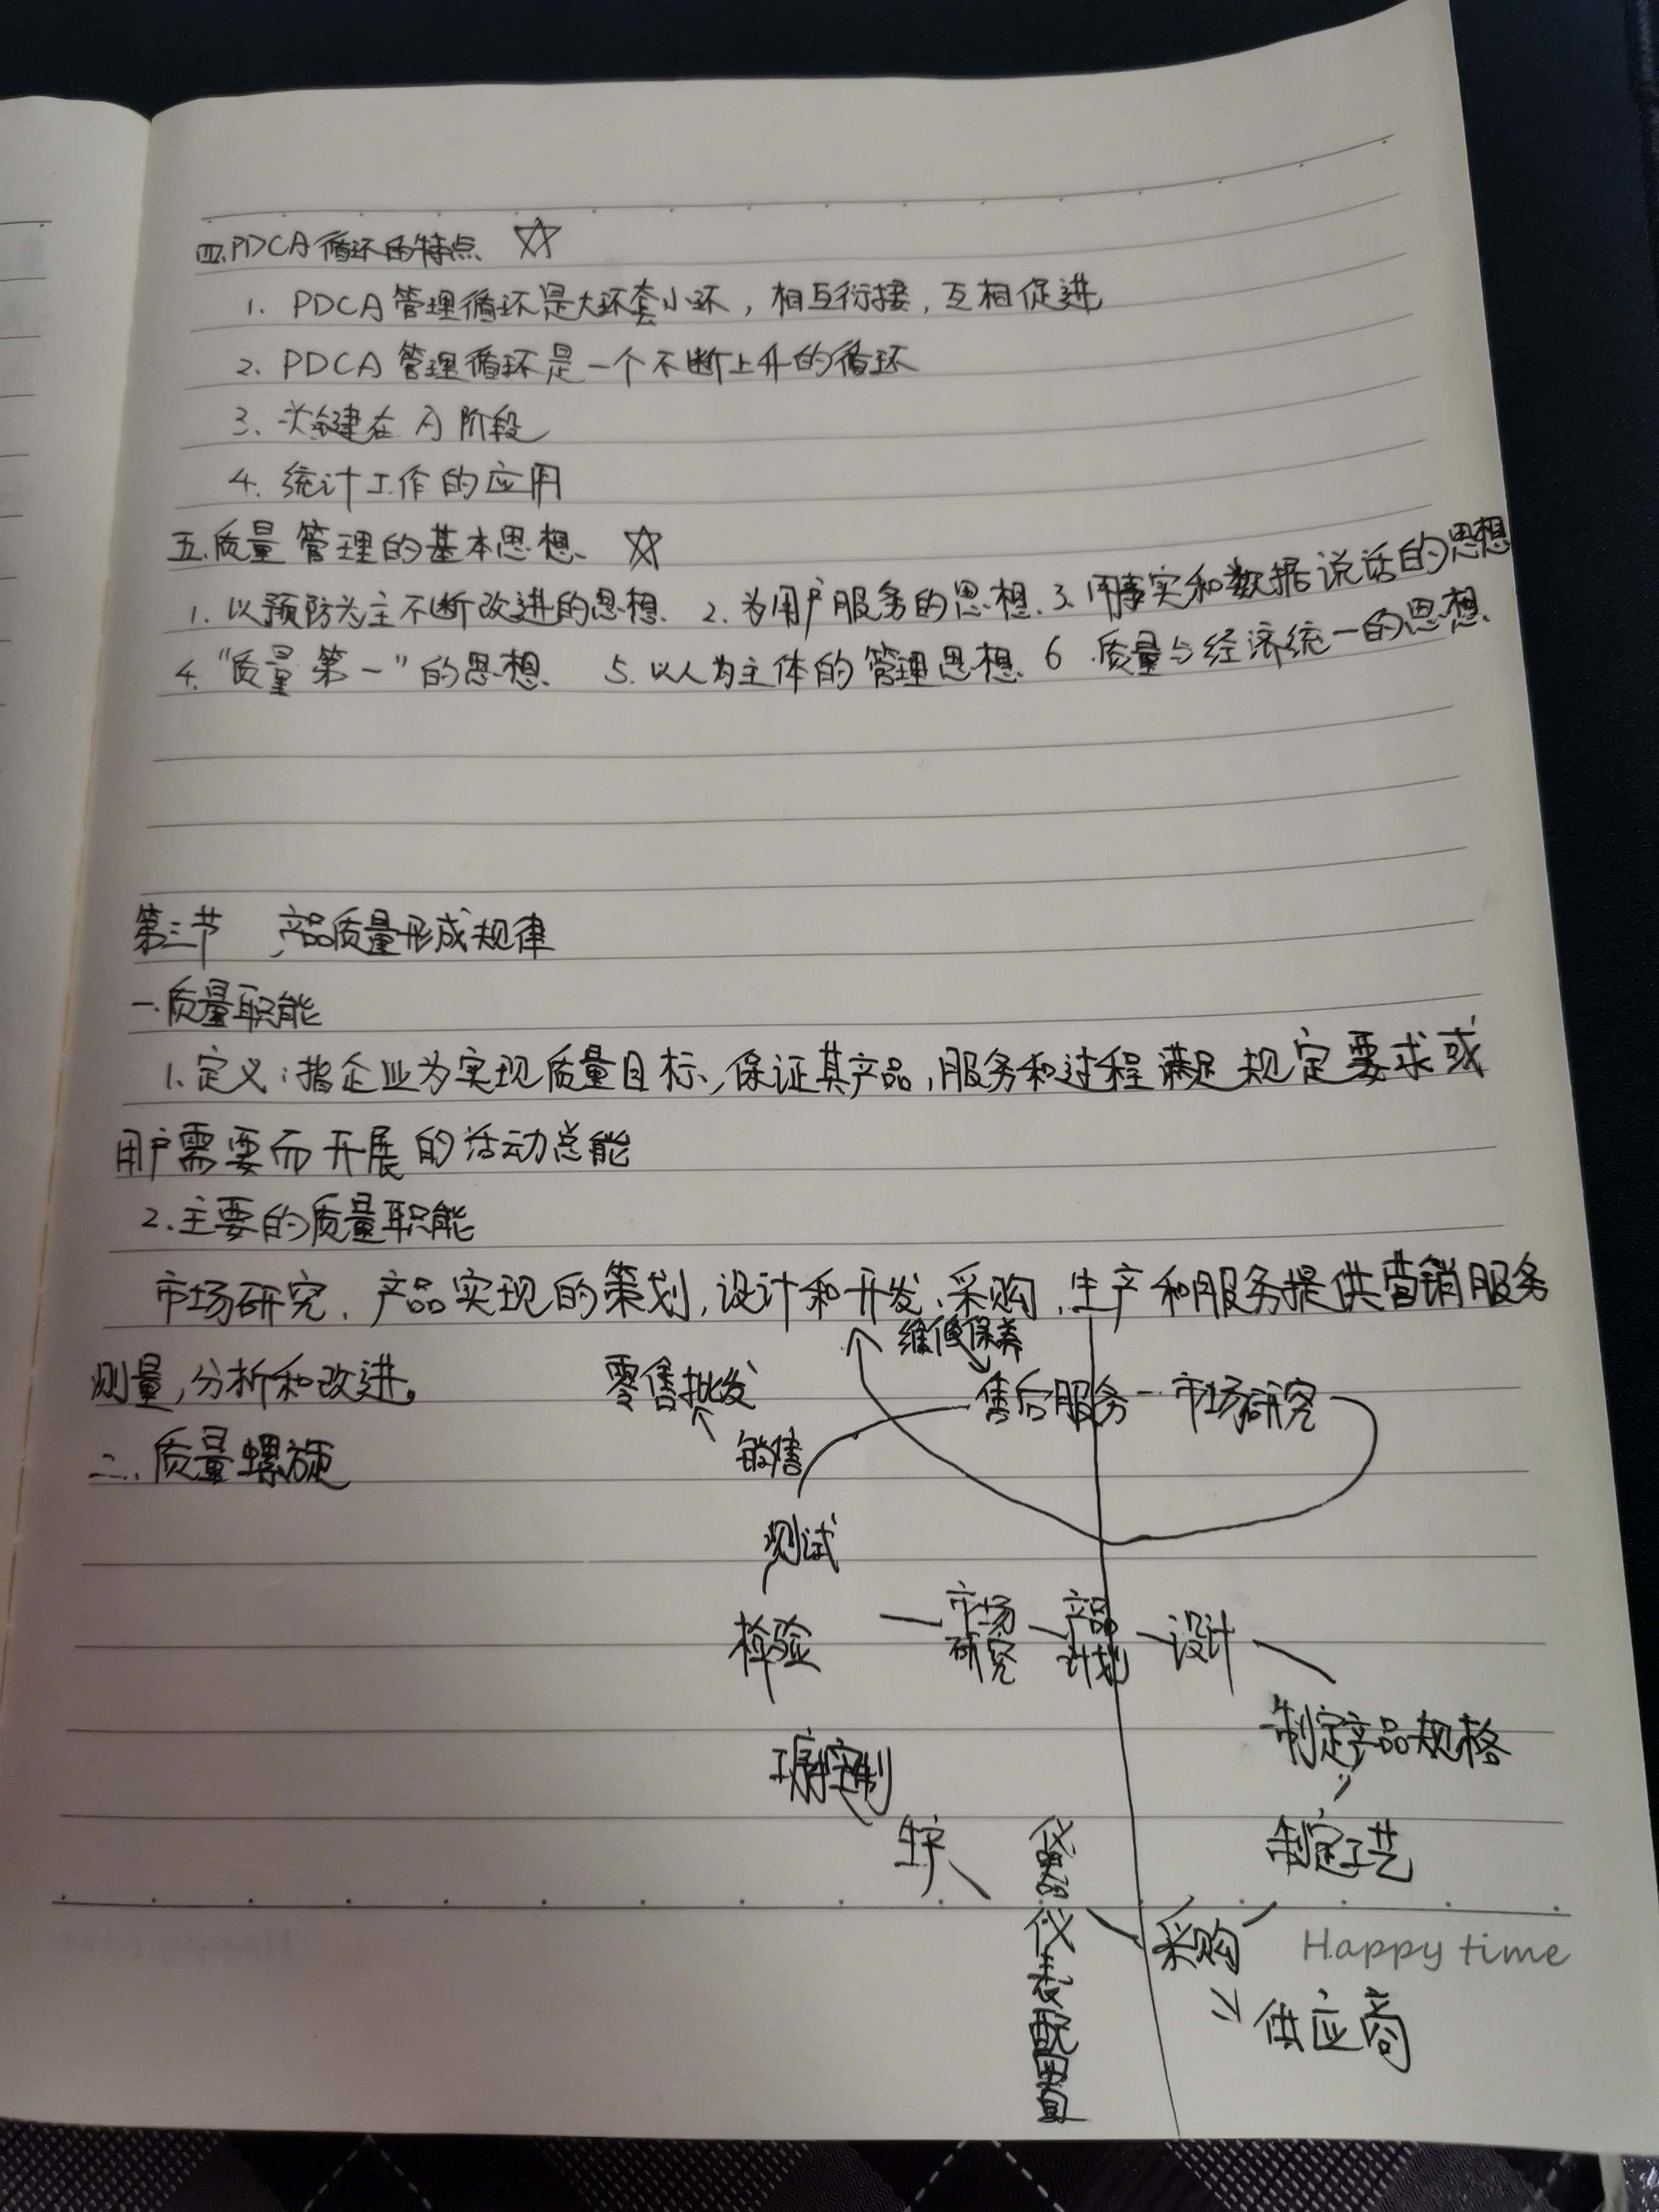 四.PDCA循环的特点 ☆
1. PDCA管理循环是大环套小环,相互衔接,互相促进
2. PDCA 管理循环是一个不断上升的循环
3. 关键在 A 阶段
4. 统计工作的应用
五.质量管理的基本思想. ☆
1. 以预防为主不断改进的思想. 2. 为用户服务的思想. 3. 用事实和数据说话的思想
4. “质量第一”的思想. 5. 以人为主体的管理思想. 6. 质量与经济统一的思想.
第三节 产品质量形成规律
一.质量职能
1. 定义:指企业为实现质量目标,保证其产品,服务和过程满足规定要求或
用户需要而开展的活动总能
2. 主要的质量职能
市场研究、产品实现的策划,设计和开发、采购,生产和服务提供营销服务
测量,分析和改进。
二.质量螺旋
维修保养
零售批发
售后服务 - 市场研究
销售
测试
市场
研究
产品
计划
设计
检验
制定产品规格
工序控制
生产
制定工艺
仪器
仪表配置
采购
Happy time
供应商